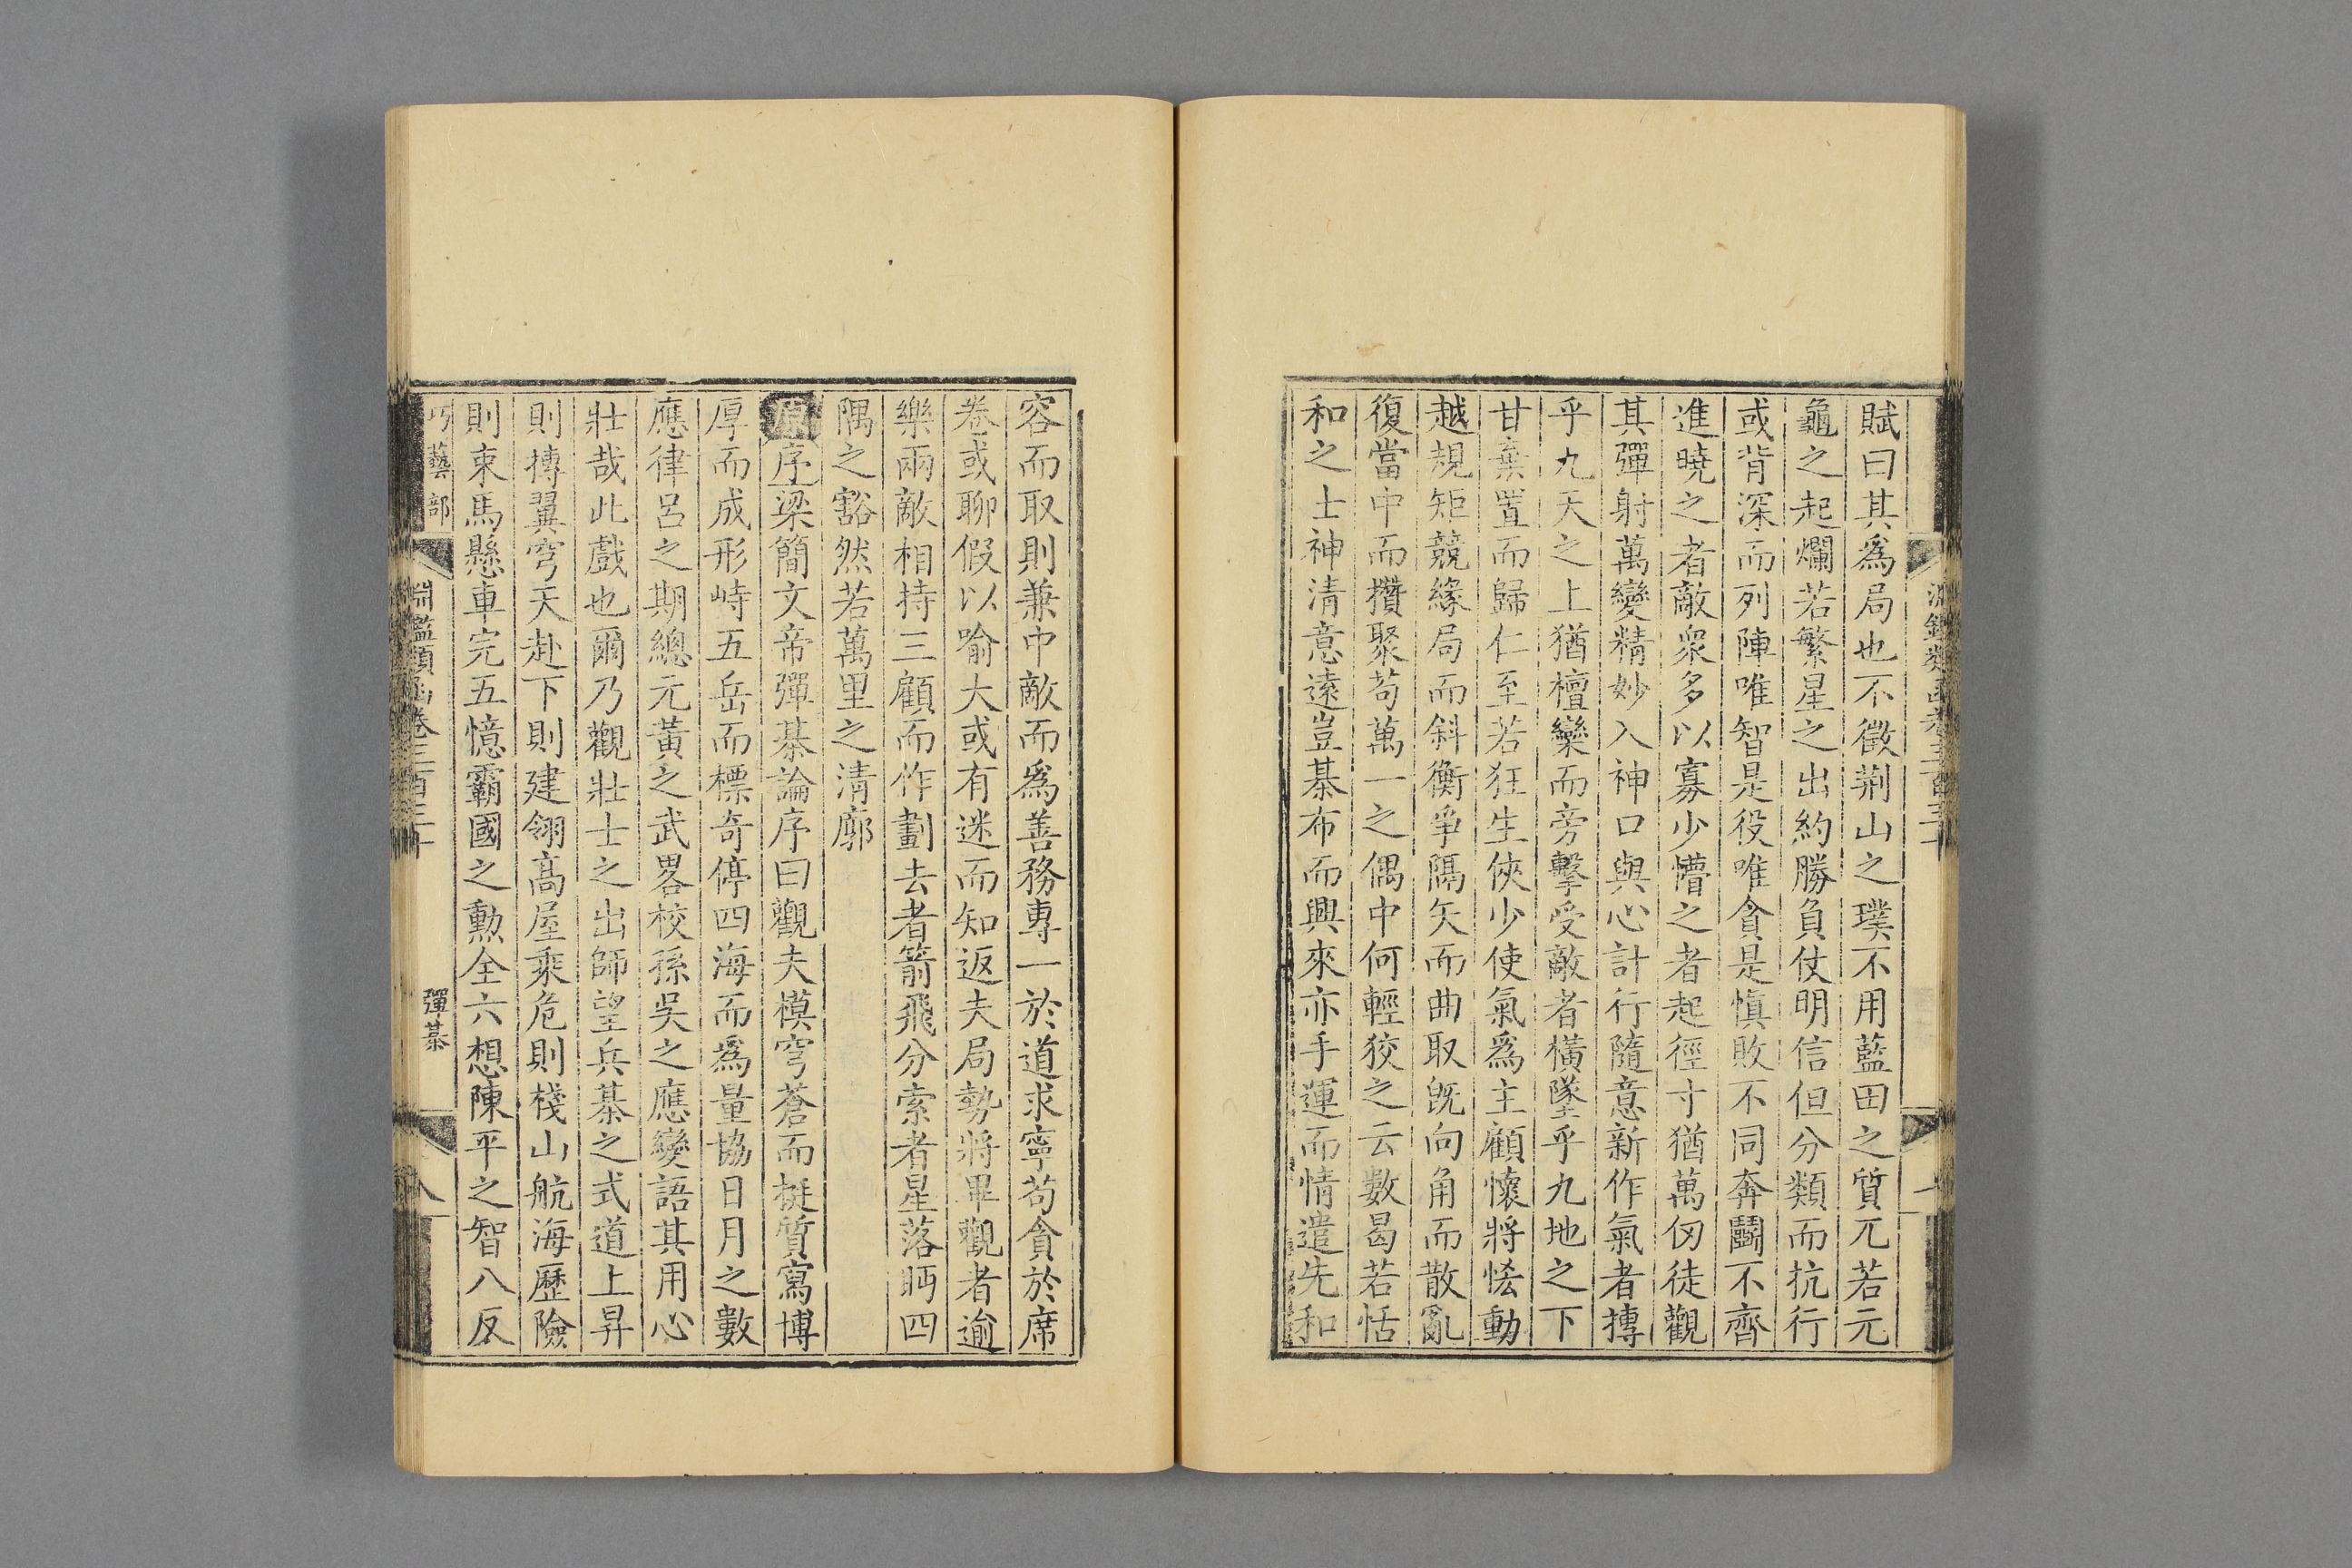 賦曰其爲局也不徵荆山之璞不用藍田之質兀若元
龜之起爛若繁星之出約勝負仗明信但分類而抗行
或背深而列陣唯智是役唯貪是愼敗不同奔鬬不齊
進曉之者敵衆多以寡少懵之者起徑寸猶萬仞徒觀
其彈射萬變精妙入神口與心計行隨意新作氣者摶
乎九天之上猶檀欒而旁擊受敵者橫墜乎九地之下
甘棄置而歸仁至若狂生俠少使氣爲主顧懷將恡動
越規矩競緣局而斜衡爭隅矢而曲取旣向角而散亂
復當中而攢聚苟萬一之偶中何輕狡之云數曷若恬
和之士神清意遠豈棊布而興來亦手運而情遣先和
容而取則兼中敵而爲善務專一於道求寧苟貪於席
卷或聊假以喻大或有迷而知返夫局勢將畢觀者逾
樂兩敵相持三顧而作劃去者箭飛分索者星落眄四
隅之豁然若萬里之清廓
原序梁簡文帝彈棊論序曰觀夫模穹蒼而挺質寫博
厚而成形峙五岳而標奇停四海而爲量協日月之數
應律呂之期總元黃之武畧校孫吳之應變語其用心
壯哉此戲也爾乃觀壯士之出師望兵棊之式道上昇
則摶翼穹天赴下則建翎高屋乘危則棧山航海歷險
則束馬懸車完五憶霸國之勲全六想陳平之智八反
巧藝部
淵鑑類函卷三百三十
彈棊
八